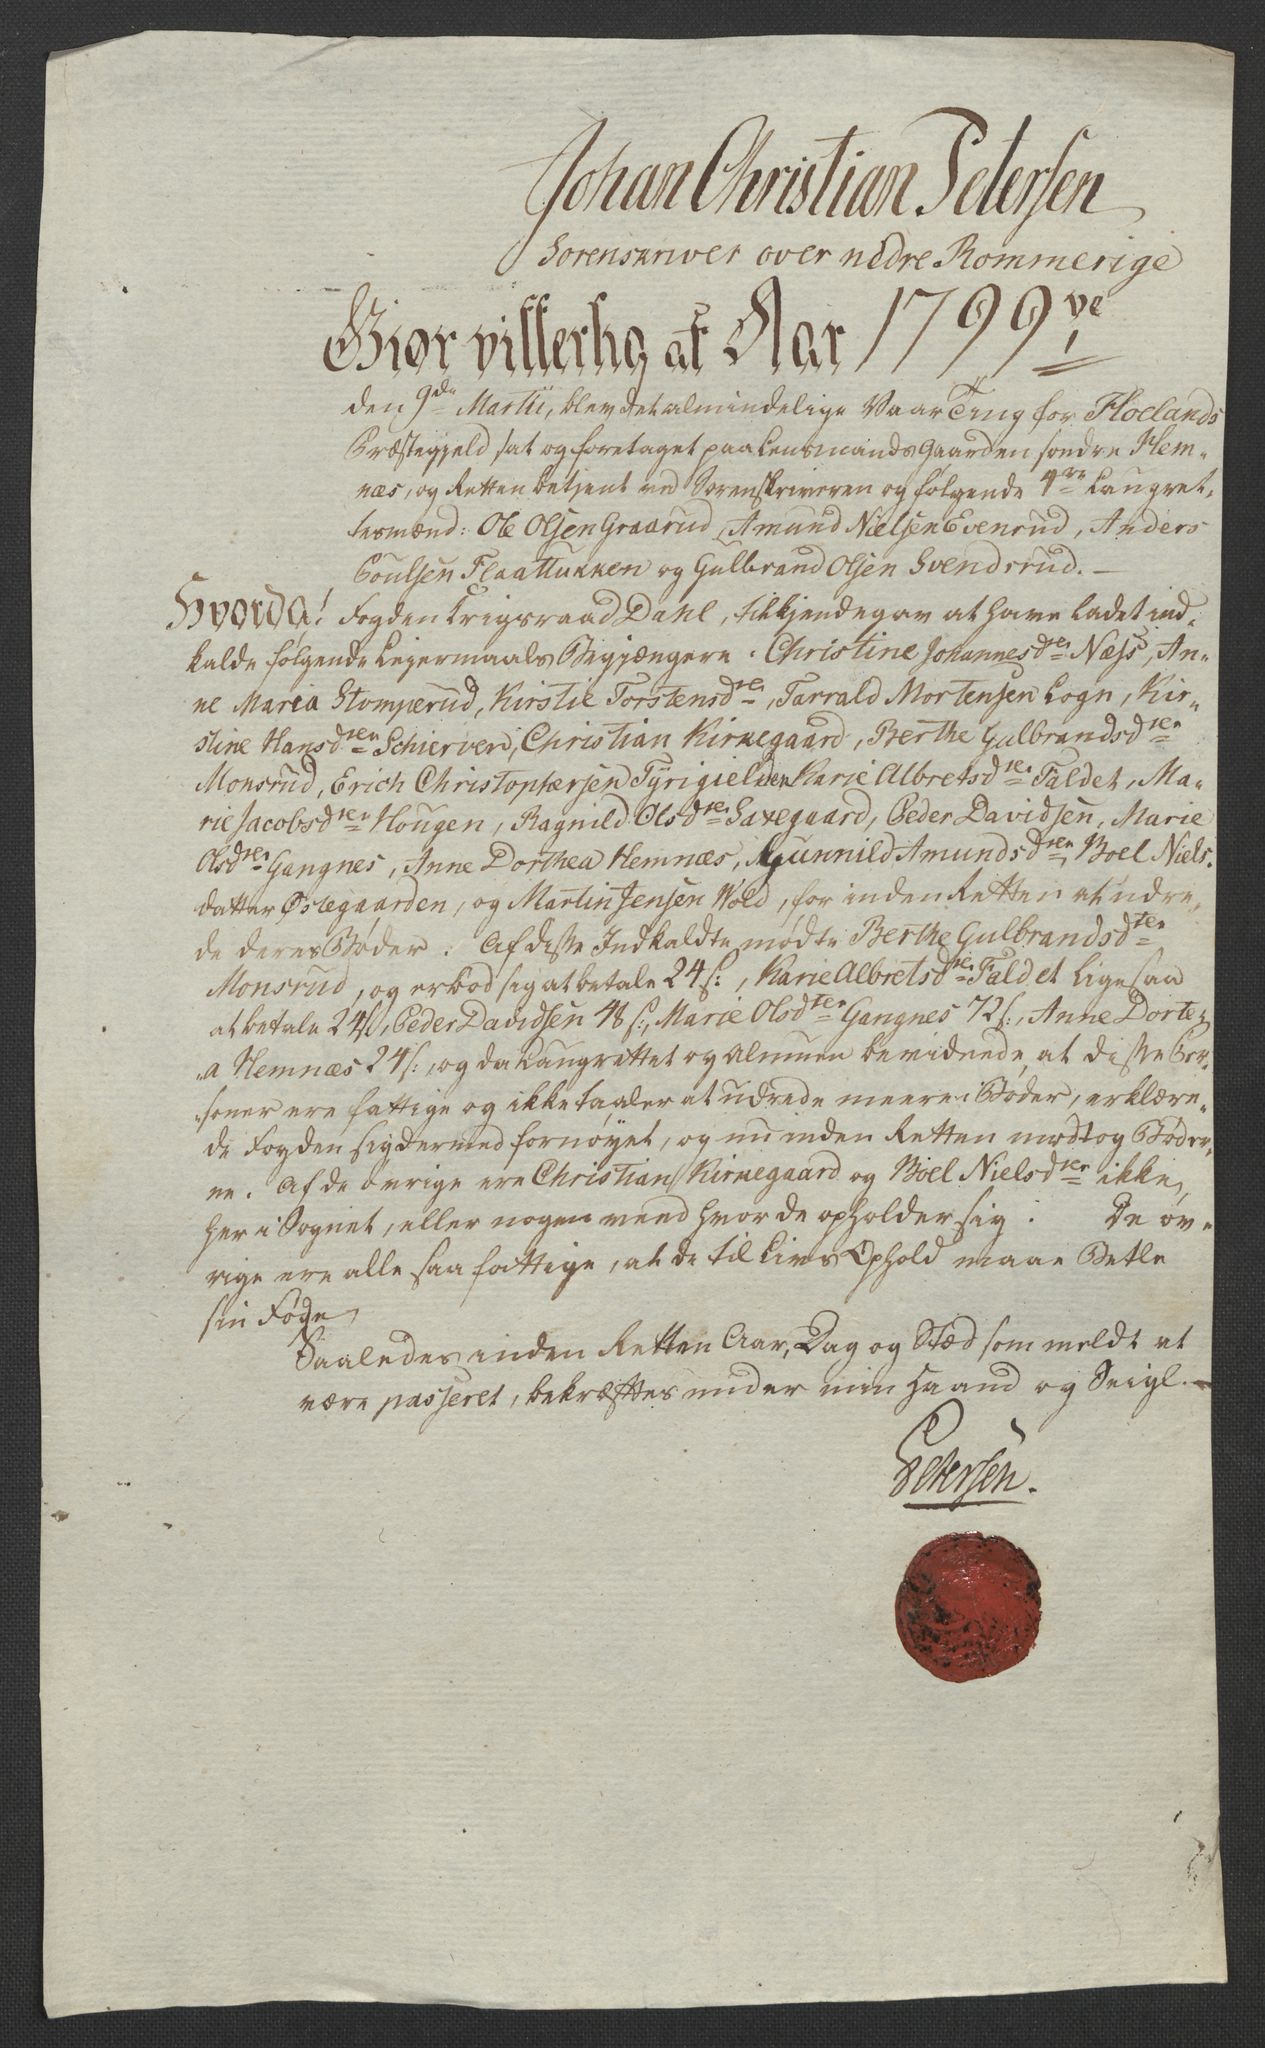 Johan Christian Petersen
Sorenskriver over nedre Rommerige
Giør vitterlig at Aar 1799 ve
den 9de Martii, blev det almindelige Vaar Ting for Hoelands
Præstegjeld sat og foretaget paa Lensmands Gaarden søndre Hem-
næs, og Retten betjent ved Sorenskriveren og følgende 4re Laugret-
tesmænd: Ole Olsen Graarud, Amund Nielsen Evenrud, Anders
Poulsen Flaattukken og Gulbrand Olsen Svendsrud. –
Hvorda! Fogden Krigsraad Dahl, tilkjendegav at have ladet ind-
kalde følgende Lejermaals Begjængere. Christine Johannesdter Næss, An-
ne Maria Stomperud, Kirstie Torstensdter, Tarrald Mortensen Logn, Kir-
stine Hansdter Schierven, Christian Kirkegaard, Berthe Gulbrandsdter
Monsrud, Erich Christophersen Tyrigielden Karie Albretsdter Faldet, Ma-
rie Jacobsdter Hougen, Ragnild Olsdter Saxegaard, Peder Davidsen, Marie
Olsdter Gangnes, Anne Dorthea Hemnæs, Gunnild Amundsdter, Boel Niels-
datter Østegaarden, og Martin Jensen Wold, for inden Retten at udre-
de deres Bøder. Af disse Indkaldte mødte Berthe Gulbrandsdter
Monsrud, og erbod sig at betale 24 s:, Karie Albretsdter Faldet ligesaa
at betale 24 s, Peder Davidsen 48 s:, Marie Olsdter Gangnes 72 s:, Anne Dorte-
a Hemnæs 24 s:, og da Laugrettet og Almuen bevidnede, at disse Per-
soner ere fattige og ikke taaler at udrede meere i Bøder, erklære-
de Fogden sig dermed fornøyet, og nu inden Retten modtog Bøder-
ne. Af de øvrige ere Christian Kirkegaard og Boel Nielsdter ikke
her i Sognet, eller nogen veed hvor de opholder sig. De øv-
rige ere alle saa fattige, at de til Livs Ophold maae Betle
sin Føde
Saaledes inden Retten Aar, Dag og Stæd som meldt at
være passeret, bekræftes under min Haand og Seigl. –
Petersen.